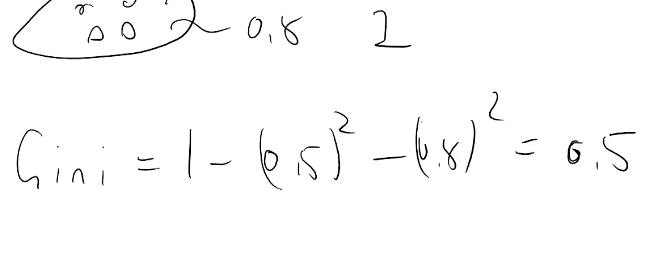 0,8 2
Gini = 1 - (0,5)² - (0,8)² = 0,5